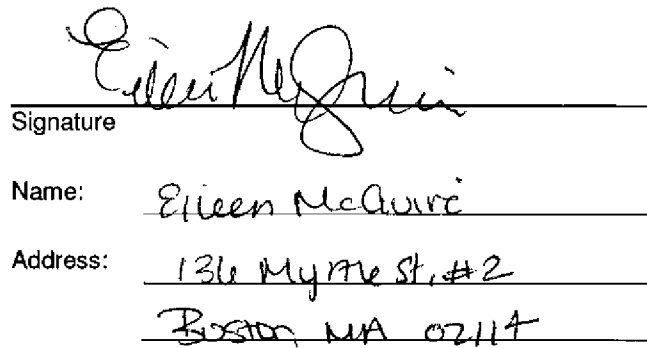 Eileen McGuire
Signature
Name: Eileen McGuire
Address: 136 Myrtle St, #2
Boston, MA 02114